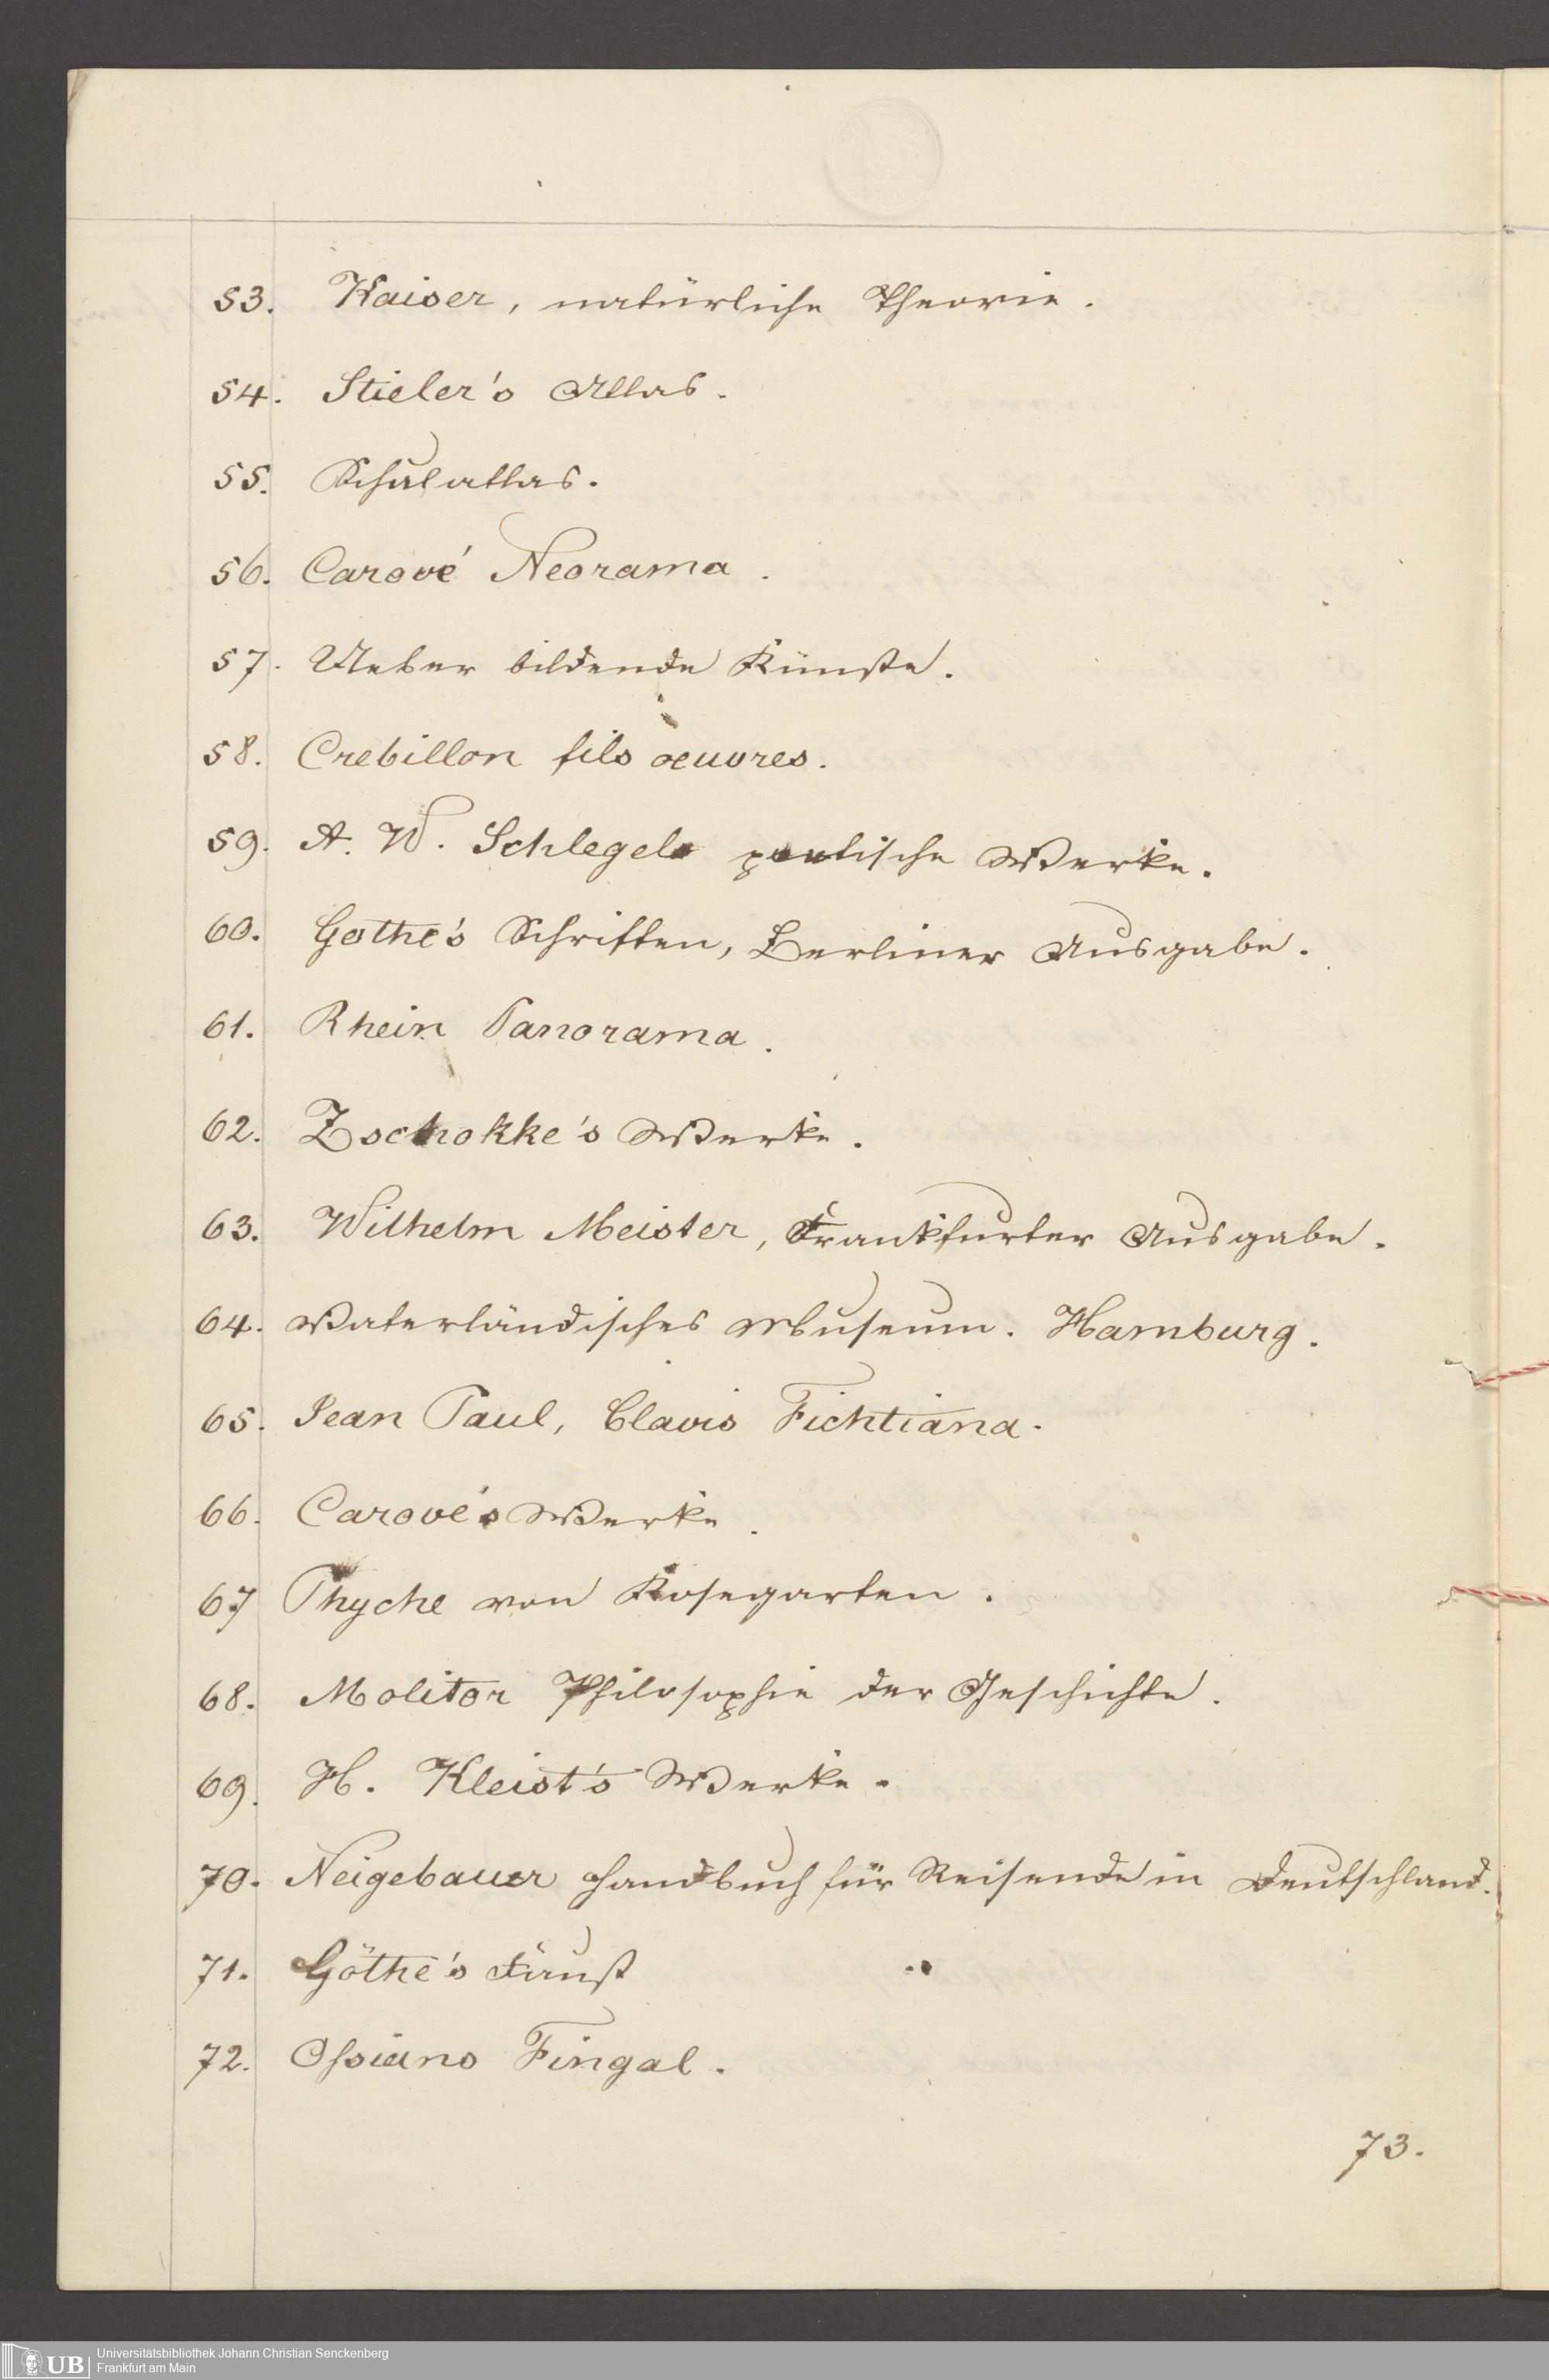 53. Kaiser, natürliche Theorie.
54. Stieler's Atlas.
55. Schulatlas.
56. Carové Neorama.
57. Ueber bildende Künste.
58. Crebillon fils oeuvres.
59. A. W. Schlegels poetische Werke.
60. Gothe's Schriften, Berliner Ausgabe.
61. Rhein Panorama.
62. Zschokke's Werke.
63. Wilhelm Meister, Frankfurter Ausgabe.
64. Vaterländisches Museum. Hamburg.
65. Jean Paul, Clavis Fichtiana.
66. Carové's Werke.
67 Thyche von Kosegarten.
68. Molitor Philosophie der Geschichte.
69. H. Kleist's Werke.
70. Neigebauer Handbuch für Reisende in Deutschland.
71. Göthe's Faust
72. Ossians Fingal.
73.
UB Universitätsbibliothek Johann Christian Senckenberg
Frankfurt am Main